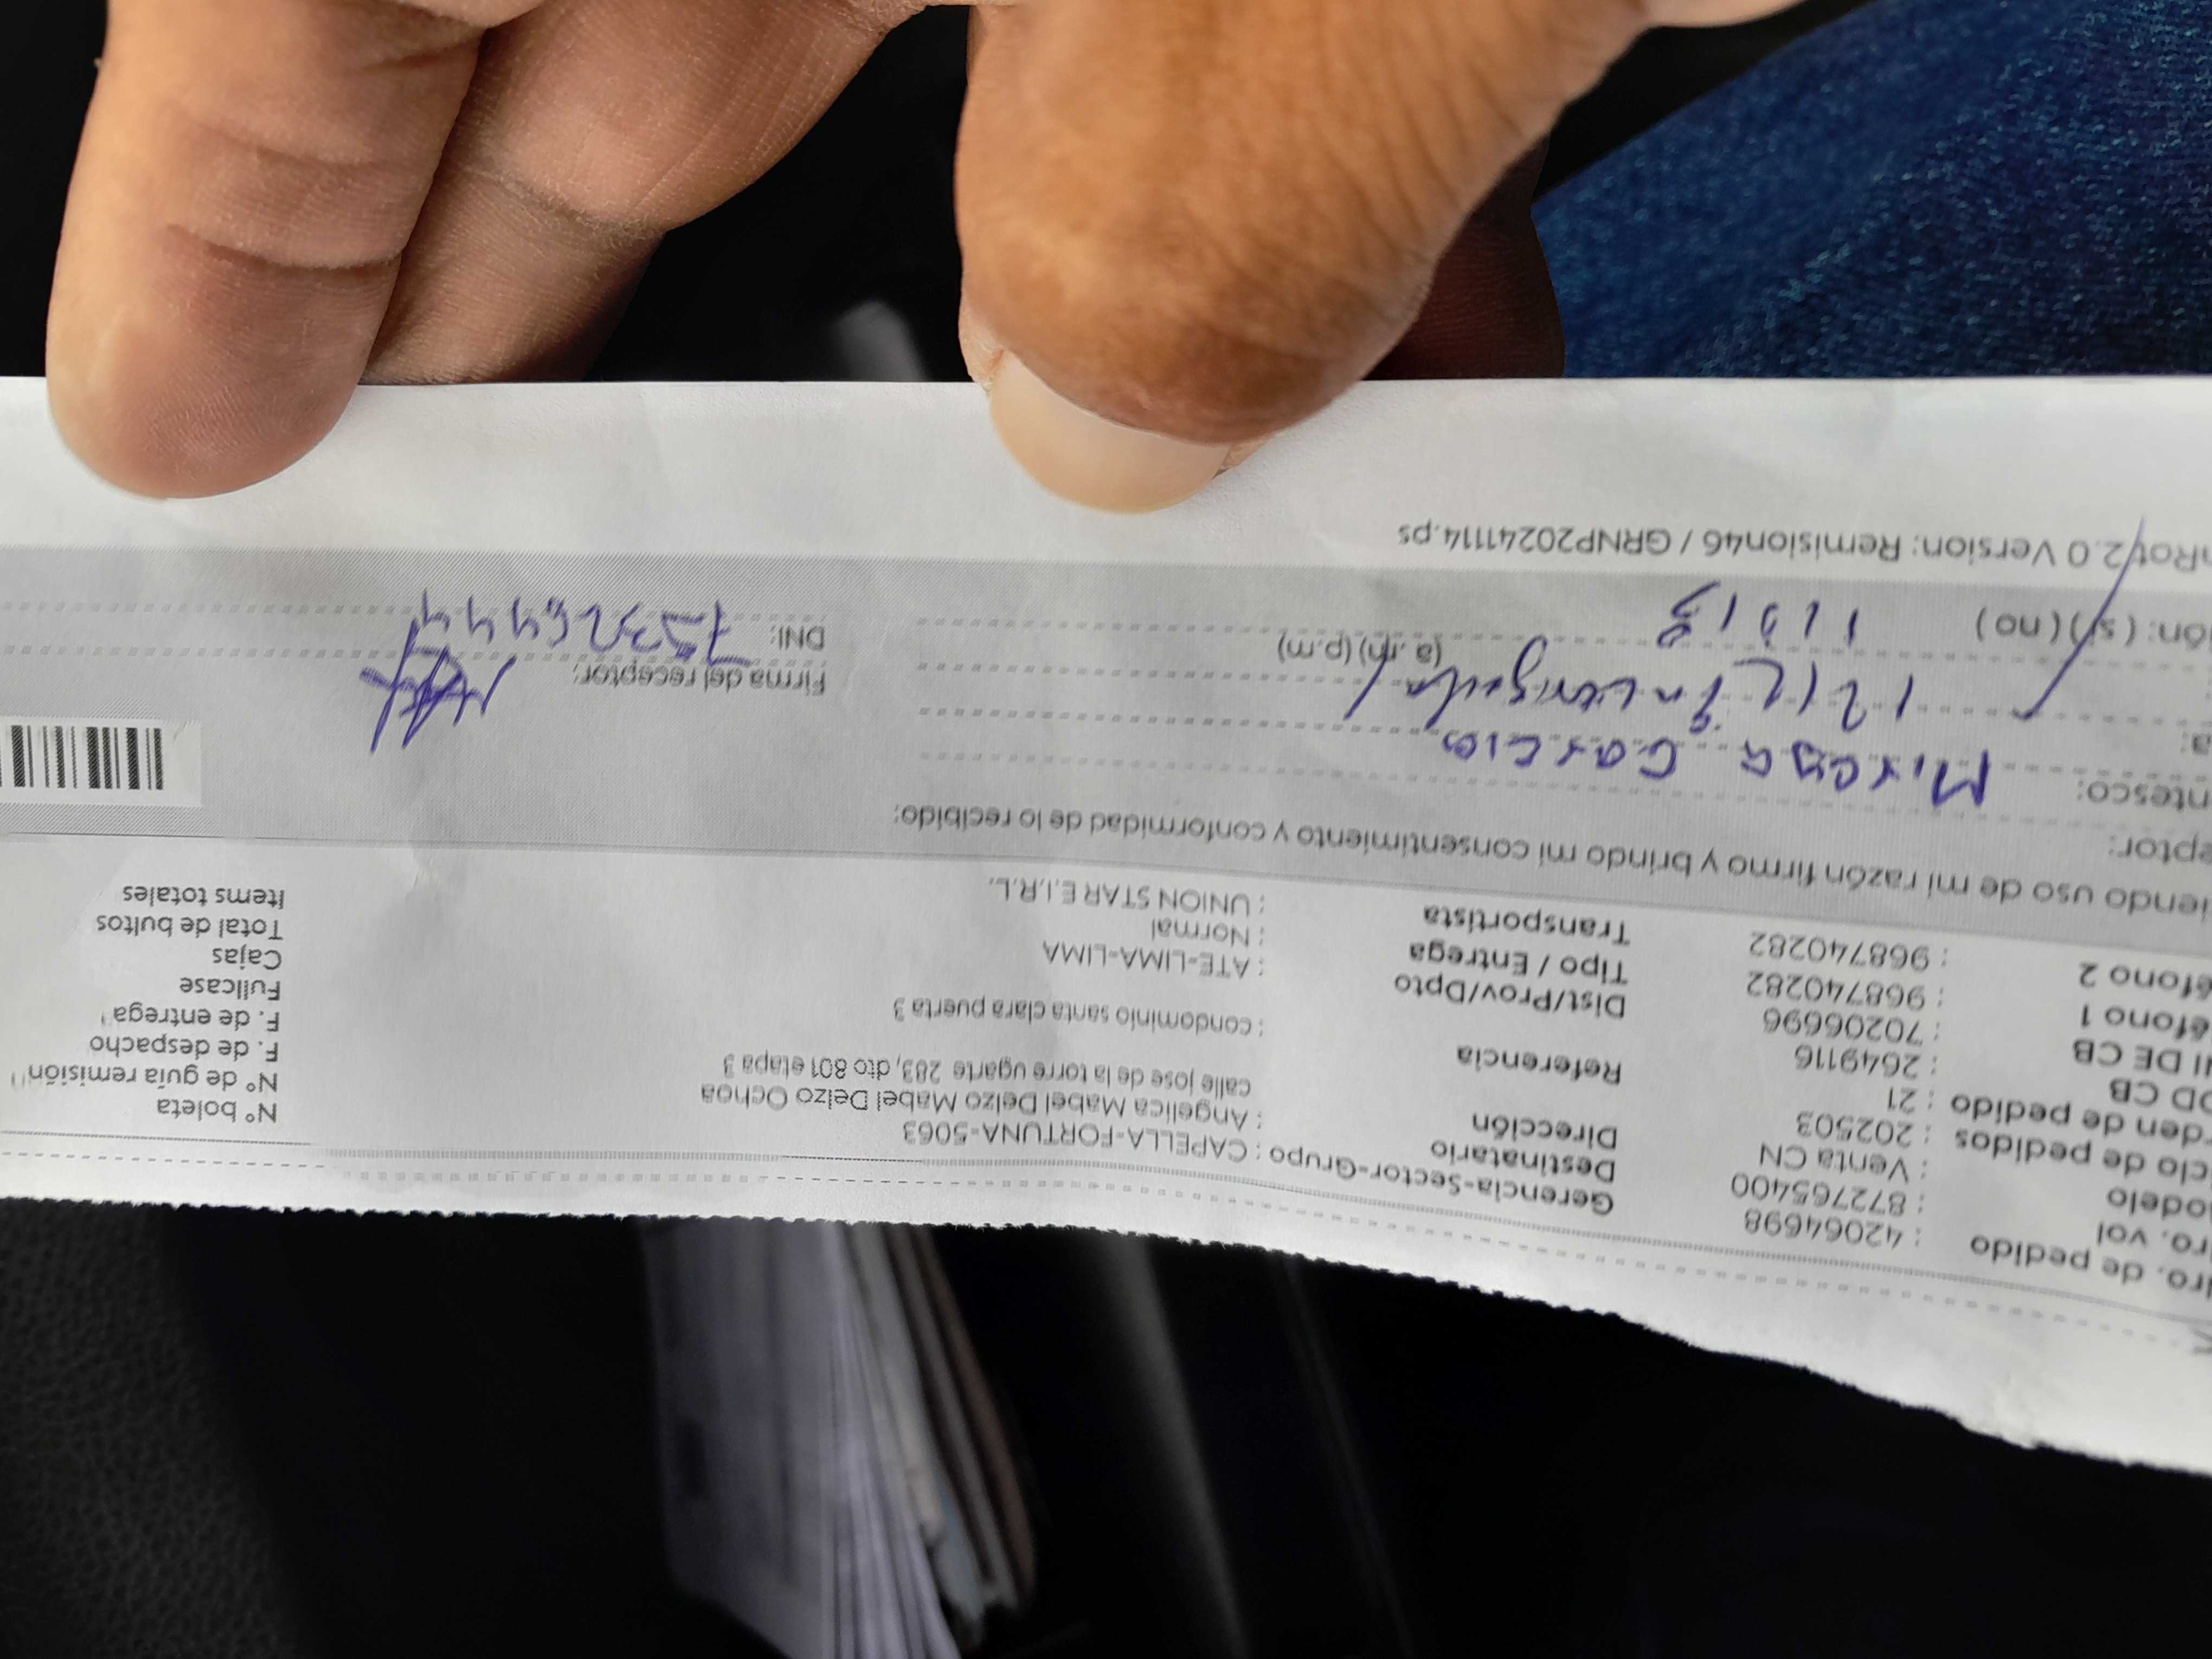 Nro. de pedido : 42064698 Gerencia-Sector-Grupo : CAPELLA-FORTUNA-5063 N° boleta
Nro. vol : 872765400 Destinatario : Angelica Mabel Delzo Mabel Delzo Ochoa N° de guía remisión
Modelo : Venta CN Dirección calle jose de la torre ugarte 283, dto 801 etapa 3 F. de despacho
Ciclo de pedidos : 202503 F. de entrega
Orden de pedido : 21 Referencia : condominio santa clara puerta 3 Fullcase
COD CB : 2649116 Dist/Prov/Dpto : ATE-LIMA-LIMA Cajas
DNI DE CB : 70206696 Tipo / Entrega : Normal Total de bultos
Teléfono 1 : 968740282 Transportista : UNION STAR E.I.R.L. Items totales
Teléfono 2 : 968740282
iendo uso de mi razón firmo y brindo mi consentimiento y conformidad de lo recibido:
eptor:
ntesco: Mireya Garcia
a: Firma del receptor:
(a.m) (p.m) DNI:
ión: (si) (no)
nRot 2.0 Version: Remision46 / GRNP20241114.ps